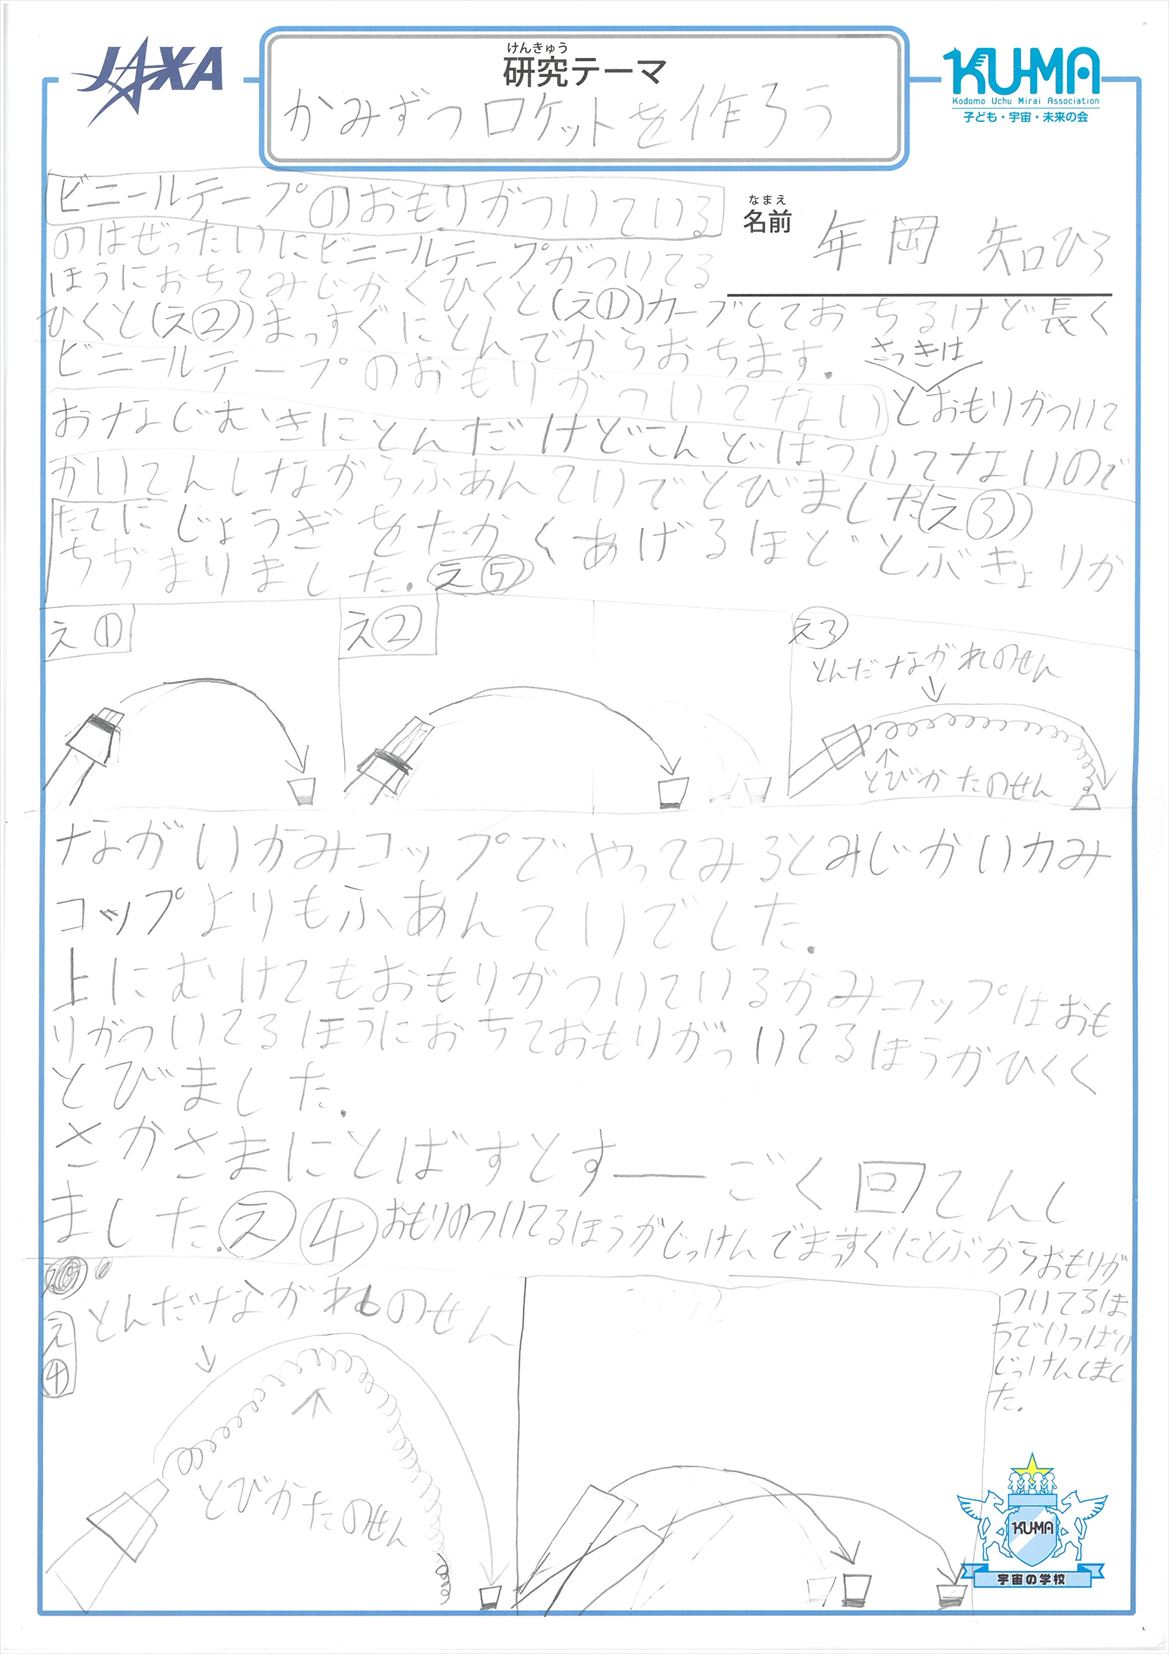 JAXA
けんきゅう
研究テーマ
かみずつロケットを作ろう
KU-MA
Kodomo Uchu Mirai Association
子ども・宇宙・未来の会
なまえ
名前
年岡 知ひろ
ビニールテープのおもりがついている
のはぜったいにビニールテープがついてる
ほうにおちてみじかくひくと(え①)カーブしておちるけど長く
ひくと(え②)まっすぐにとんでからおちます.
さっきは
ビニールテープのおもりがついてないとおもりがついて
おなじむきにとんだけどこんどはついてないので
かいてんしながらふあんていでとびました(え③)
たてにじょうぎをたかくあげるほどとぶきょりか
ちぢまりました.え⑤
え①
え②
え3
とんだながれのせん
とびかたのせん
ながいかみコップでやってみるとみじかいカみ
コップよりもふあんていでした.
上にむけてもおもりがついているかみコップはおも
りがついてるほうにおちておもりがついてるほうがひくく
とびました.
さかさまにとばすとすーごく回てんし
ました.え④おもりのついてるほうがじっけんでまっすぐにとぶからおもりが
ついてるほ
うでいっぱい
じっけんしまし
た.
え④
とんだながれのせん
とびかたのせん
KU-MA
宇宙の学校